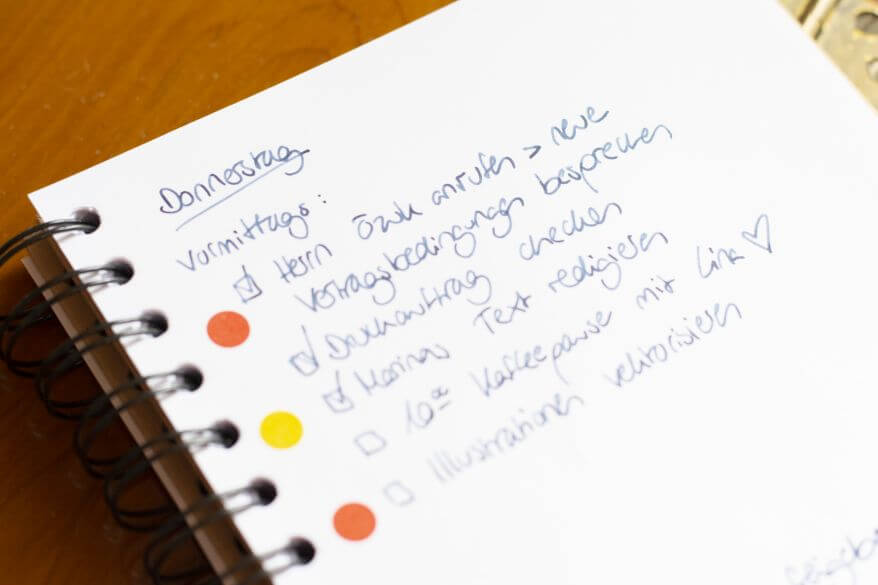 Donnerstag
Vormittags:
Herrn anrufen > neue
Vertragsbedingungen besprechen
Druckauftrag checken
Marinas Text redigieren
10⁰⁰ Kaffeepause mit Lina ♡
Illustrationen vektorisieren